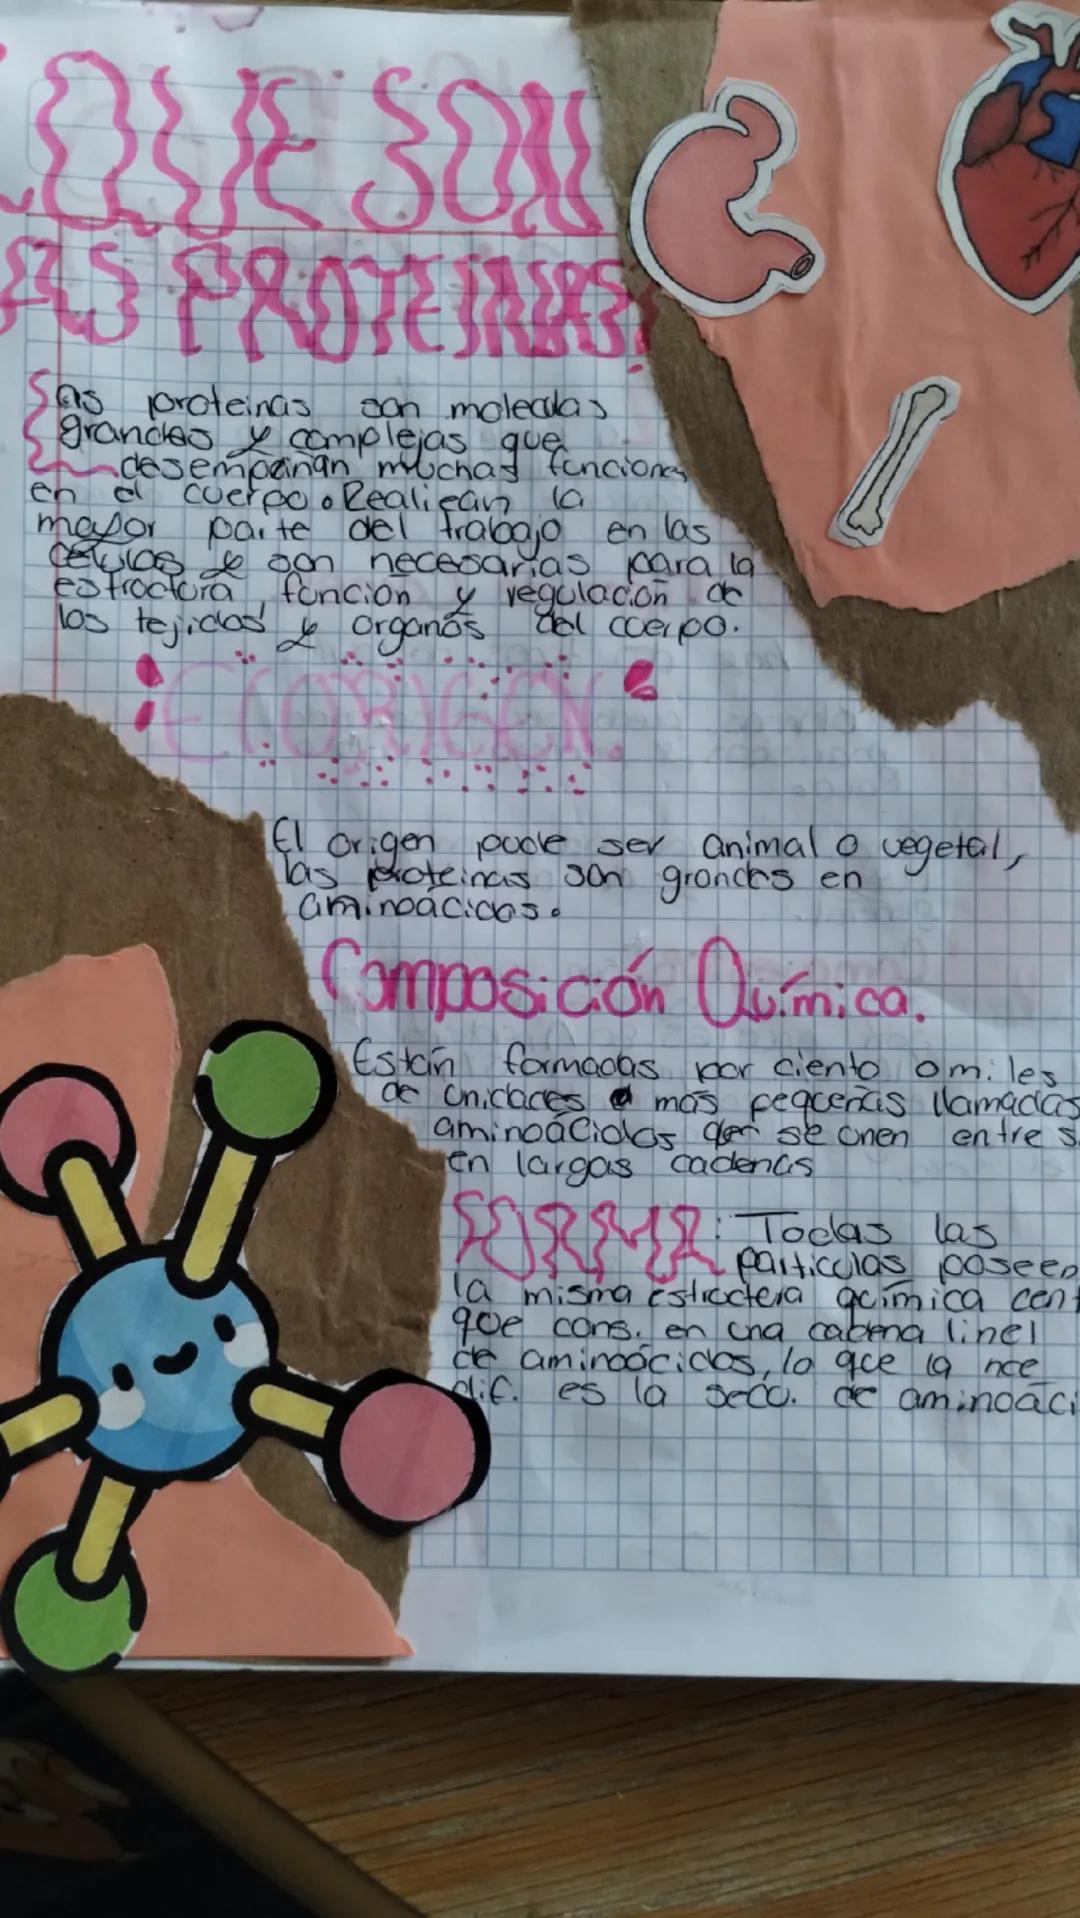 ¿QUE SON
LAS PROTEINAS?
Las proteinas son moleculas
grandes y complejas que
desempeñan muchas funciones
en el cuerpo. Realizan la
mayor parte del trabajo en las
células y son necesarias para la
estructura, función y regulación de
los tejidos y organos del cuerpo.
El ORIGEN.
El origen puede ser animal o vegetal,
las proteinas son grandes en
aminoácidos.
Composición Química.
Están formadas por ciento o miles
de unidades más pequeñas llamadas
aminoácidos que se unen entre s
en largas cadenas
FORMA: Todas las
particulas poseen
la misma estructura química cent
que cons. en una cadena linel
de aminoácidos, lo que la
dif. es la secc. de aminoáci